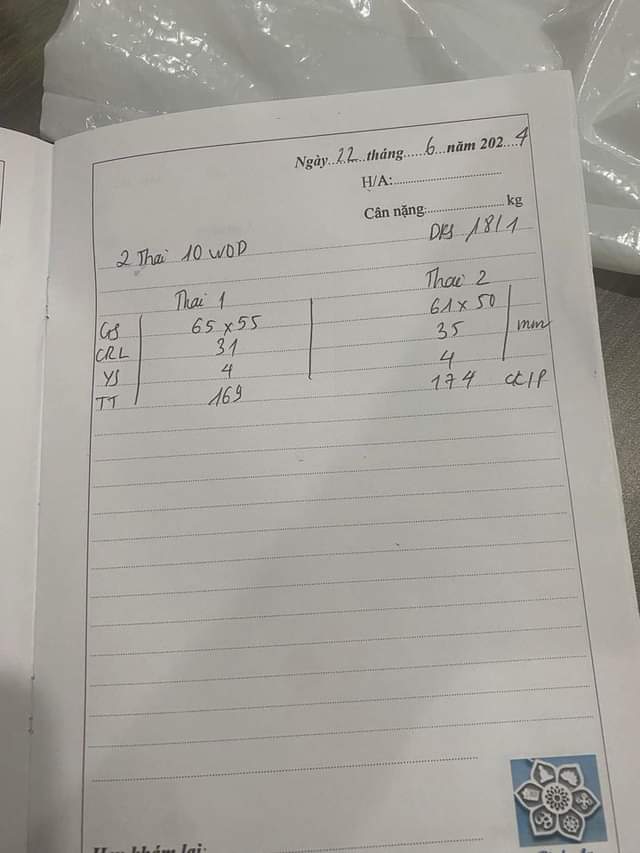 Ngày..22..tháng......6...năm 202...4
H/A:
Cân nặng: kg
2 Thai 10 W0D DKS 18/1
Thai 1 Thai 2
GS 65 x 55 61 x 50
CRL 31 35 mm
YS 4 4
TT 169 174 ck/p
Hẹn khám lại: